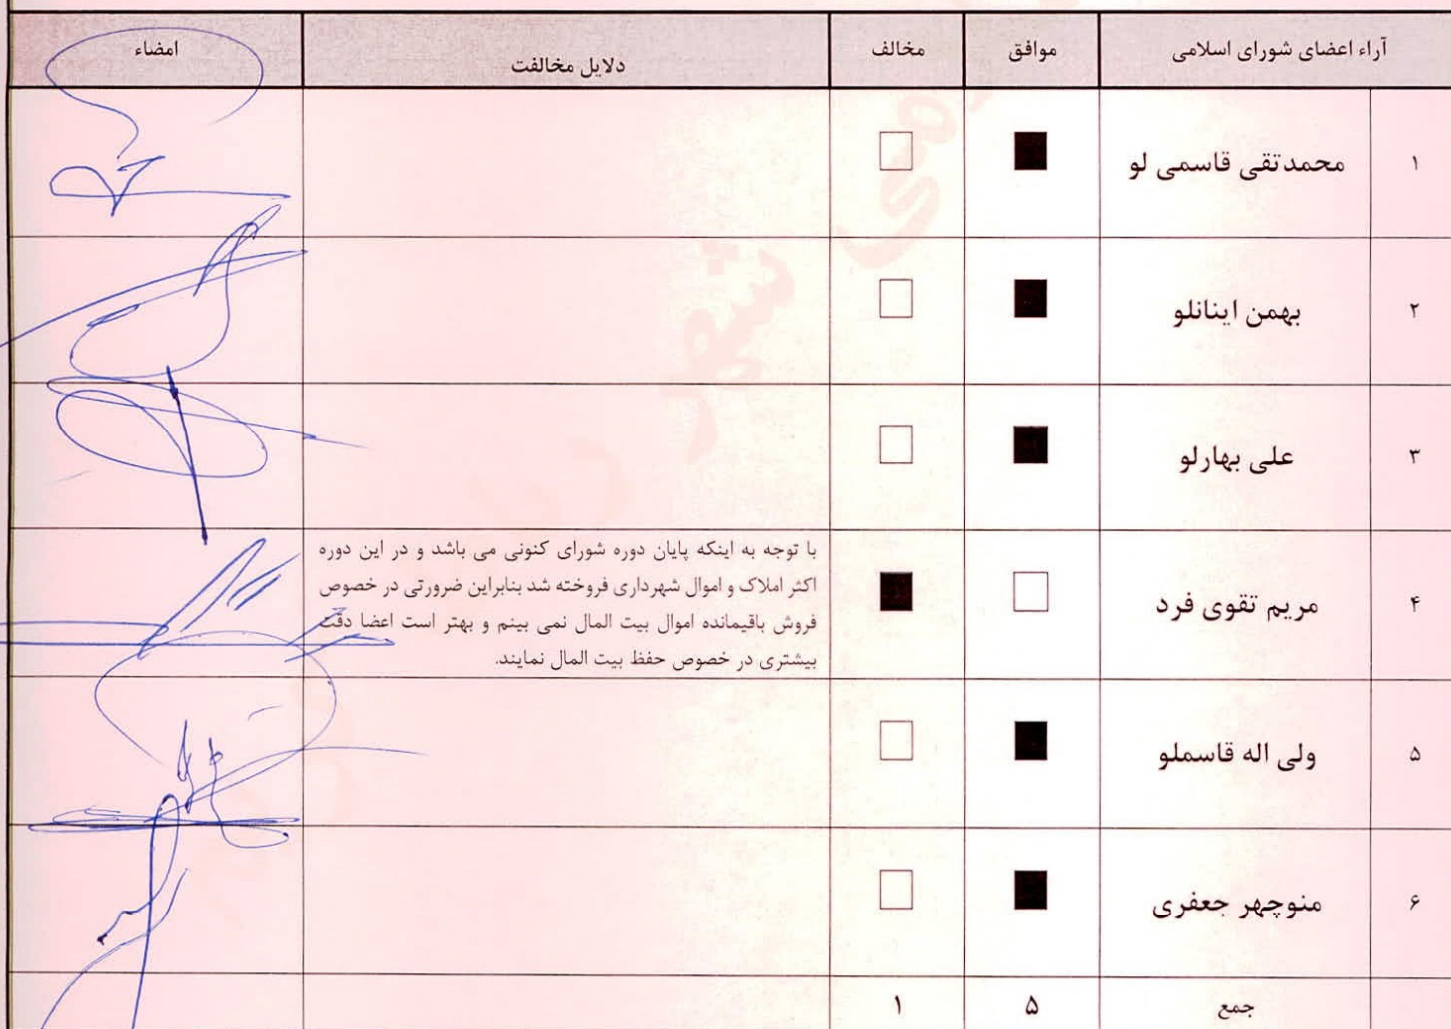 آراء اعضای شورای اسلامی موافق مخالف دلایل مخالفت امضاء
۱ محمدتقی قاسمی لو
۲ بهمن اینانلو
۳ علی بهارلو
۴ مریم تقوی فرد
با توجه به اینکه پایان دوره شورای کنونی می باشد و در این دوره
اکثر املاک و اموال شهرداری فروخته شد بنابراین ضرورتی در خصوص
فروش باقیمانده اموال بیت المال نمی بینم و بهتر است اعضا دقت
بیشتری در خصوص حفظ بیت المال نمایند.
۵ ولی اله قاسملو
۶ منوچهر جعفری
جمع ۵ ۱